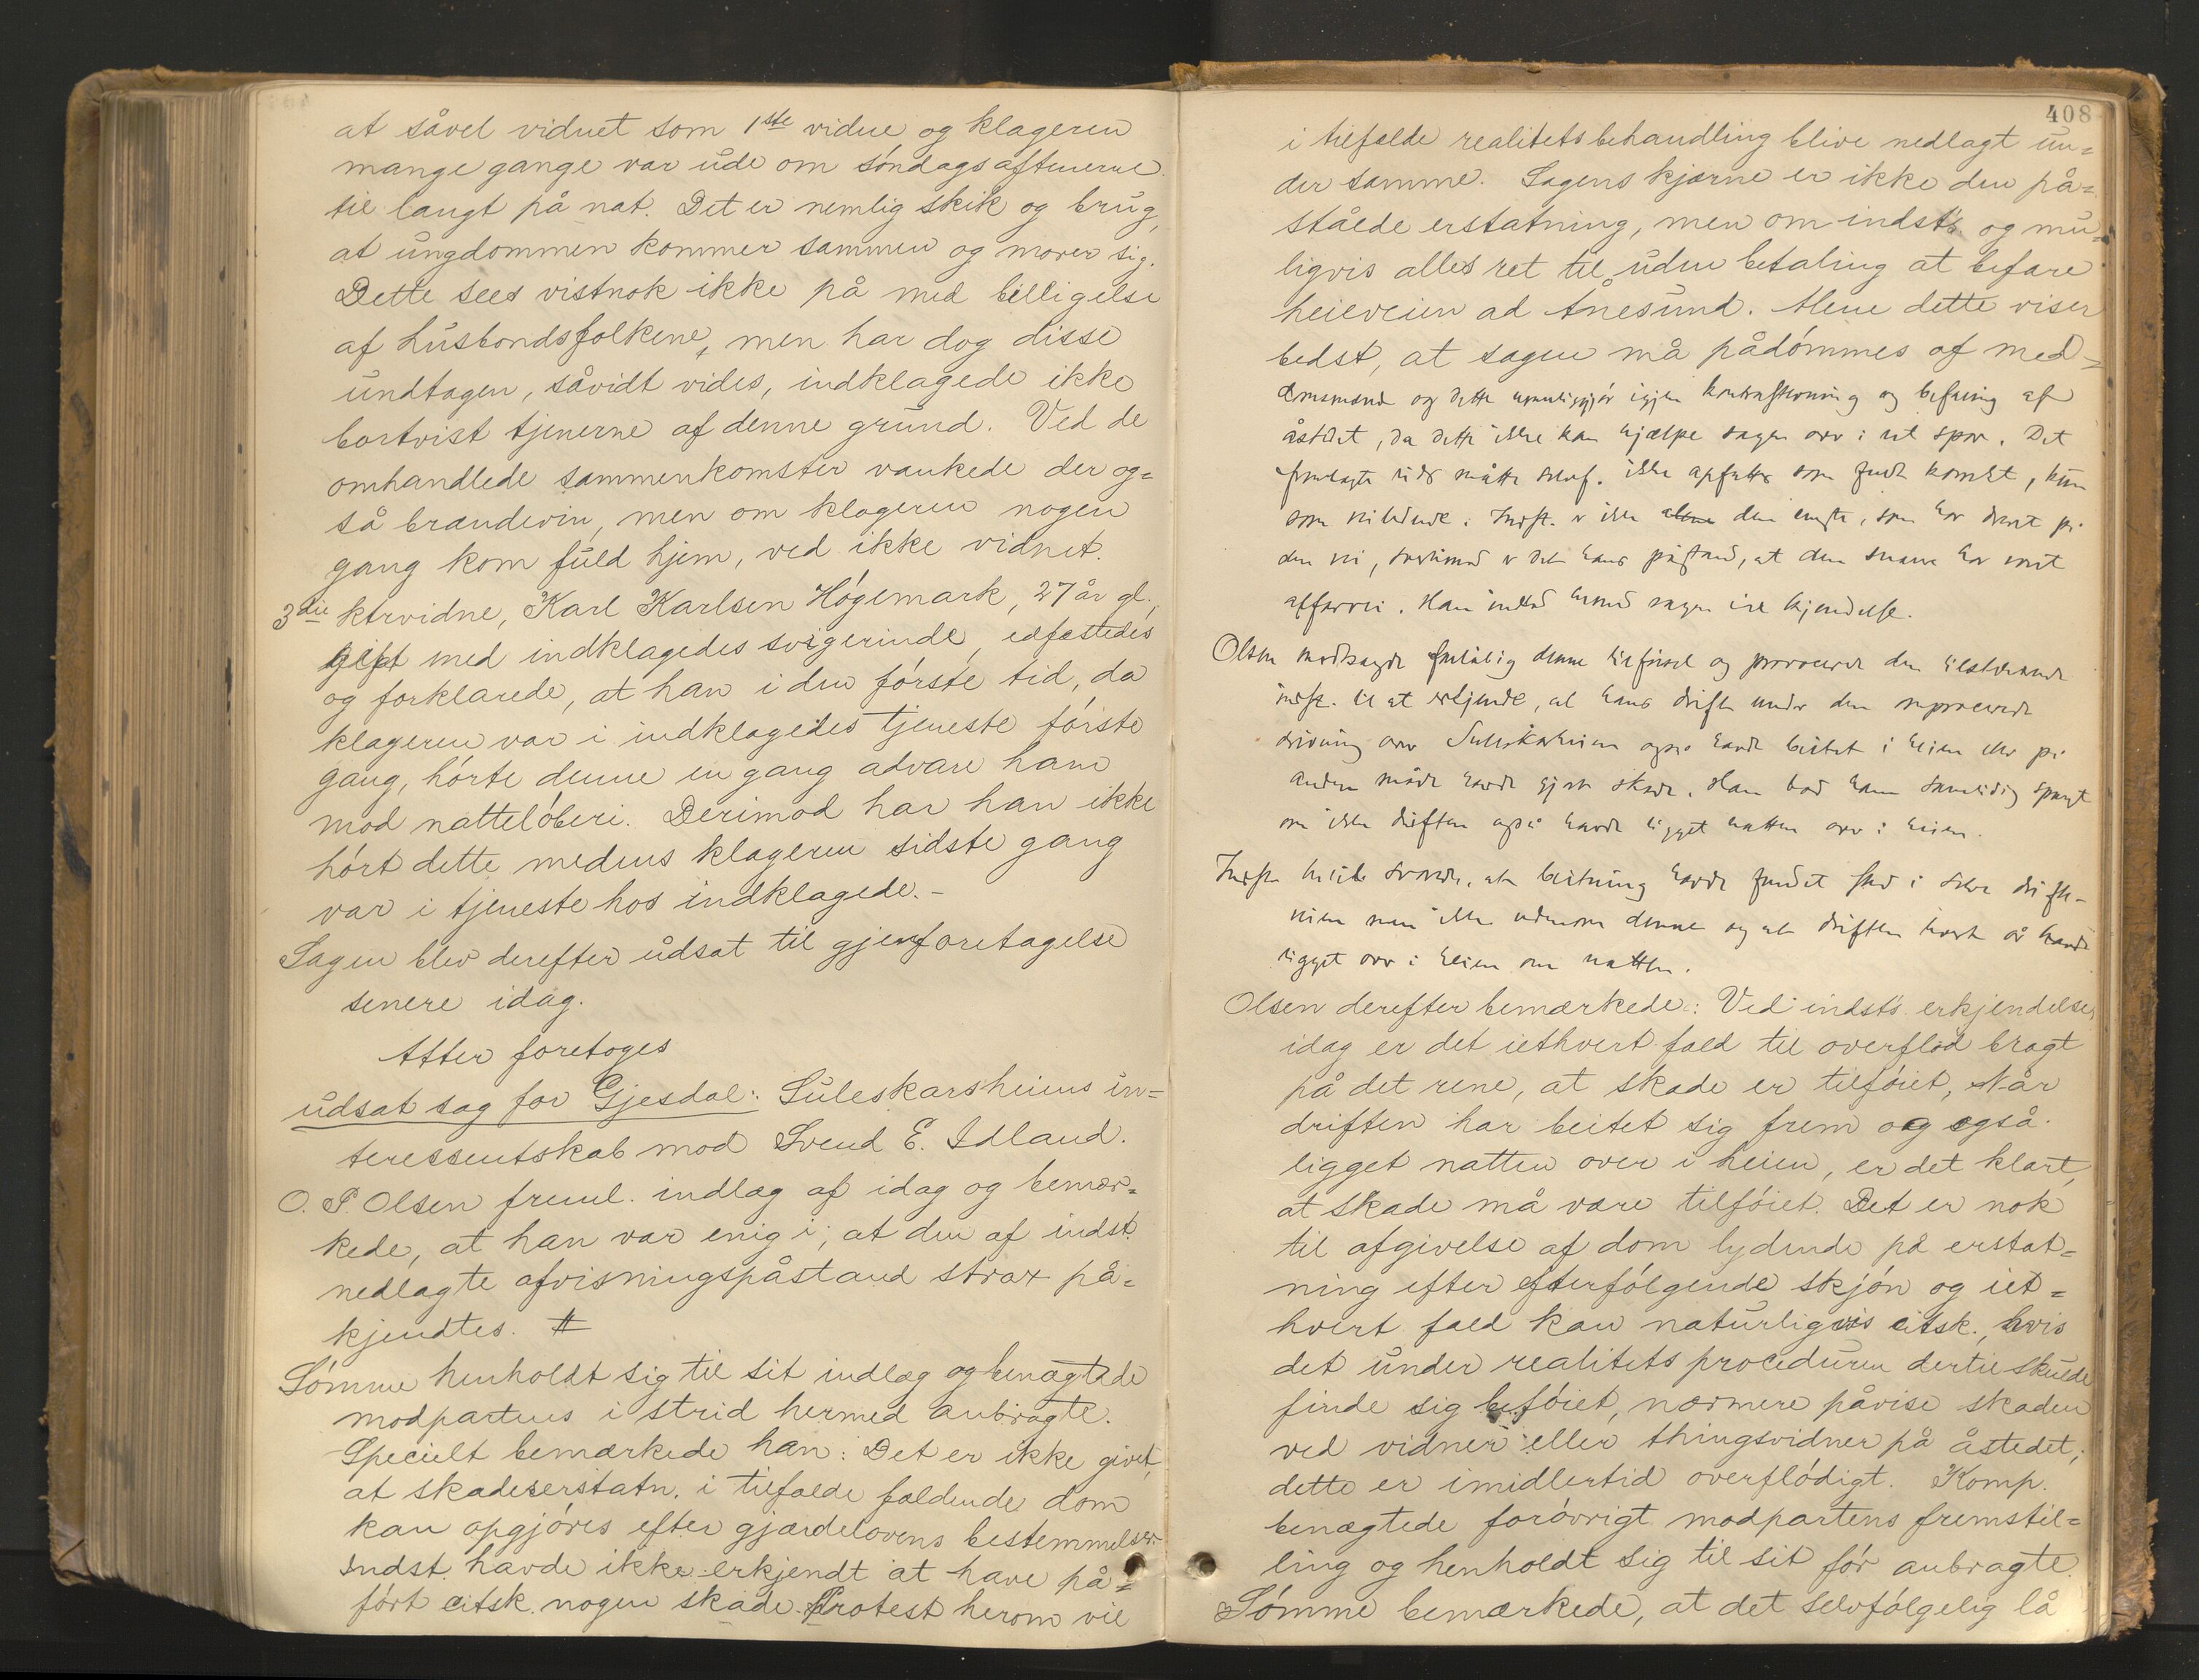 at såvel vidnet som 1ste vidne og klageren
mange gange var ude om søndagsaftenerne
til langt på nat. Det er nemlig skik og brug,
at ungdommen kommer sammen og morer sig.
Dette sees vistnok ikke på med billigelse
af husbondsfolkene, men har dog disse
undtagen, såvidt vides, indklagede ikke
bortvist tjenerne af denne grund. Ved de
omhandlede sammenkomster vankede der og=
så brændevin, men om klageren nogen
gang kom fuld hjem, ved ikke vidnet.
3die ktrvidne, Karl Karlsen Høgemark, 27 år gl.,
gift med indklagedes svigerinde, edfæstedes
og forklarede, at han i den første tid, da
klageren var i indklagedes tjeneste første
gang, hørte denne en gang advare ham
mod natteløberi. Derimod har han ikke
hørt dette medens klageren sidste gang
var i tjeneste hos indklagede.-
Sagen blev derefter udsat til gjenforetagelse
senere idag.
Atter foretoges
udsat sag for Gjesdal: Suleskarsheiens in=
teressentskab mod Svend E. Idland.
O. P. Olsen freml. indlæg af idag og bemær=
kede, at han var enig i, at den af indst.
nedlagte afvisningspåstand strax på=
kjendtes. #
Sømme henholdt sig til sit indlæg og benægtede
modpartens i strid hermed anbragte.
Specielt bemærkede han: Det er ikke givet,
at skadeserstatn. i tilfælde fældende dom
kan opgjøres efter gjærdelovens bestemmelser.
Indst. havde ikke erkjendt at have på=
ført citsk. nogen skade. Protest herom vil
408
i tilfælde realitetsbehandling blive nedlagt un=
der samme. Sagens kjærne er ikke den på=
ståede erstatning, men om indst's og mu=
ligvis alles ret til uden betaling at befare
heieveien ad Ånesund. Alene dette viser
bedst, at sagen må pådømmes af med=
domsmænd og dette umuliggjør igjen kontraftevning og befaring af
åstedet, da dette ikke kan hjælpe sagen over i ret spor. Det
fremlagte måtte ikke opfattes som, kun
som veiledende. Indst. er ikke alene den eneste, som har drevet på
den vei, derimod er det hans påstand, at den samme har været
alfarvei. Han indlod hermed sagen til kjendelse.
Olsen modsagde foreløbig denne tilførsel og provocerede den tilstedeværende
indst. til at erkjende, at hans drift under den
drivning over Suleskarheien også havde beitet i heien eller på
anden måde havde gjort skade. Han bad ham samtidig spurgt
om ikke driften også havde ligget natten over i heien.
Indst. hertil svarede, at beitning havde fundet sted i selve drifte-
veien men ikke udenom denne og at driften hvert år havde
ligget over i heien om natten.
Olsen derefter bemærkede: Ved indst's erkjendelse
idag er det iethvert fald til overflod bragt
på det rene, at skade er tilføiet, Når
driften har beitet sig frem og også
ligget natten over i heien, er det klart,
at skade må være tilføiet. Det er nok
til afgivelse af dom lydende på erstat=
ning efter efterfølgende skjøn og iet=
hvert fald kan naturligvis citsk., hvis
det under realitetsproceduren dertil skulde
finde sig beføiet, nærmere påvise skaden
ved vidner eller thingsvidner på åstedet,
dette er imidlertid overflødigt. Komp.
benægtede forøvrigt modpartens fremstil=
ling og henholdt sig til sit før anbragte.
Sømme bemærkede, at det selvfølgelig lå